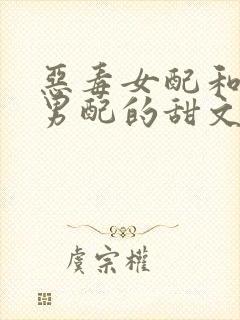 惡毒女配和
男配的甜文
虞宗權